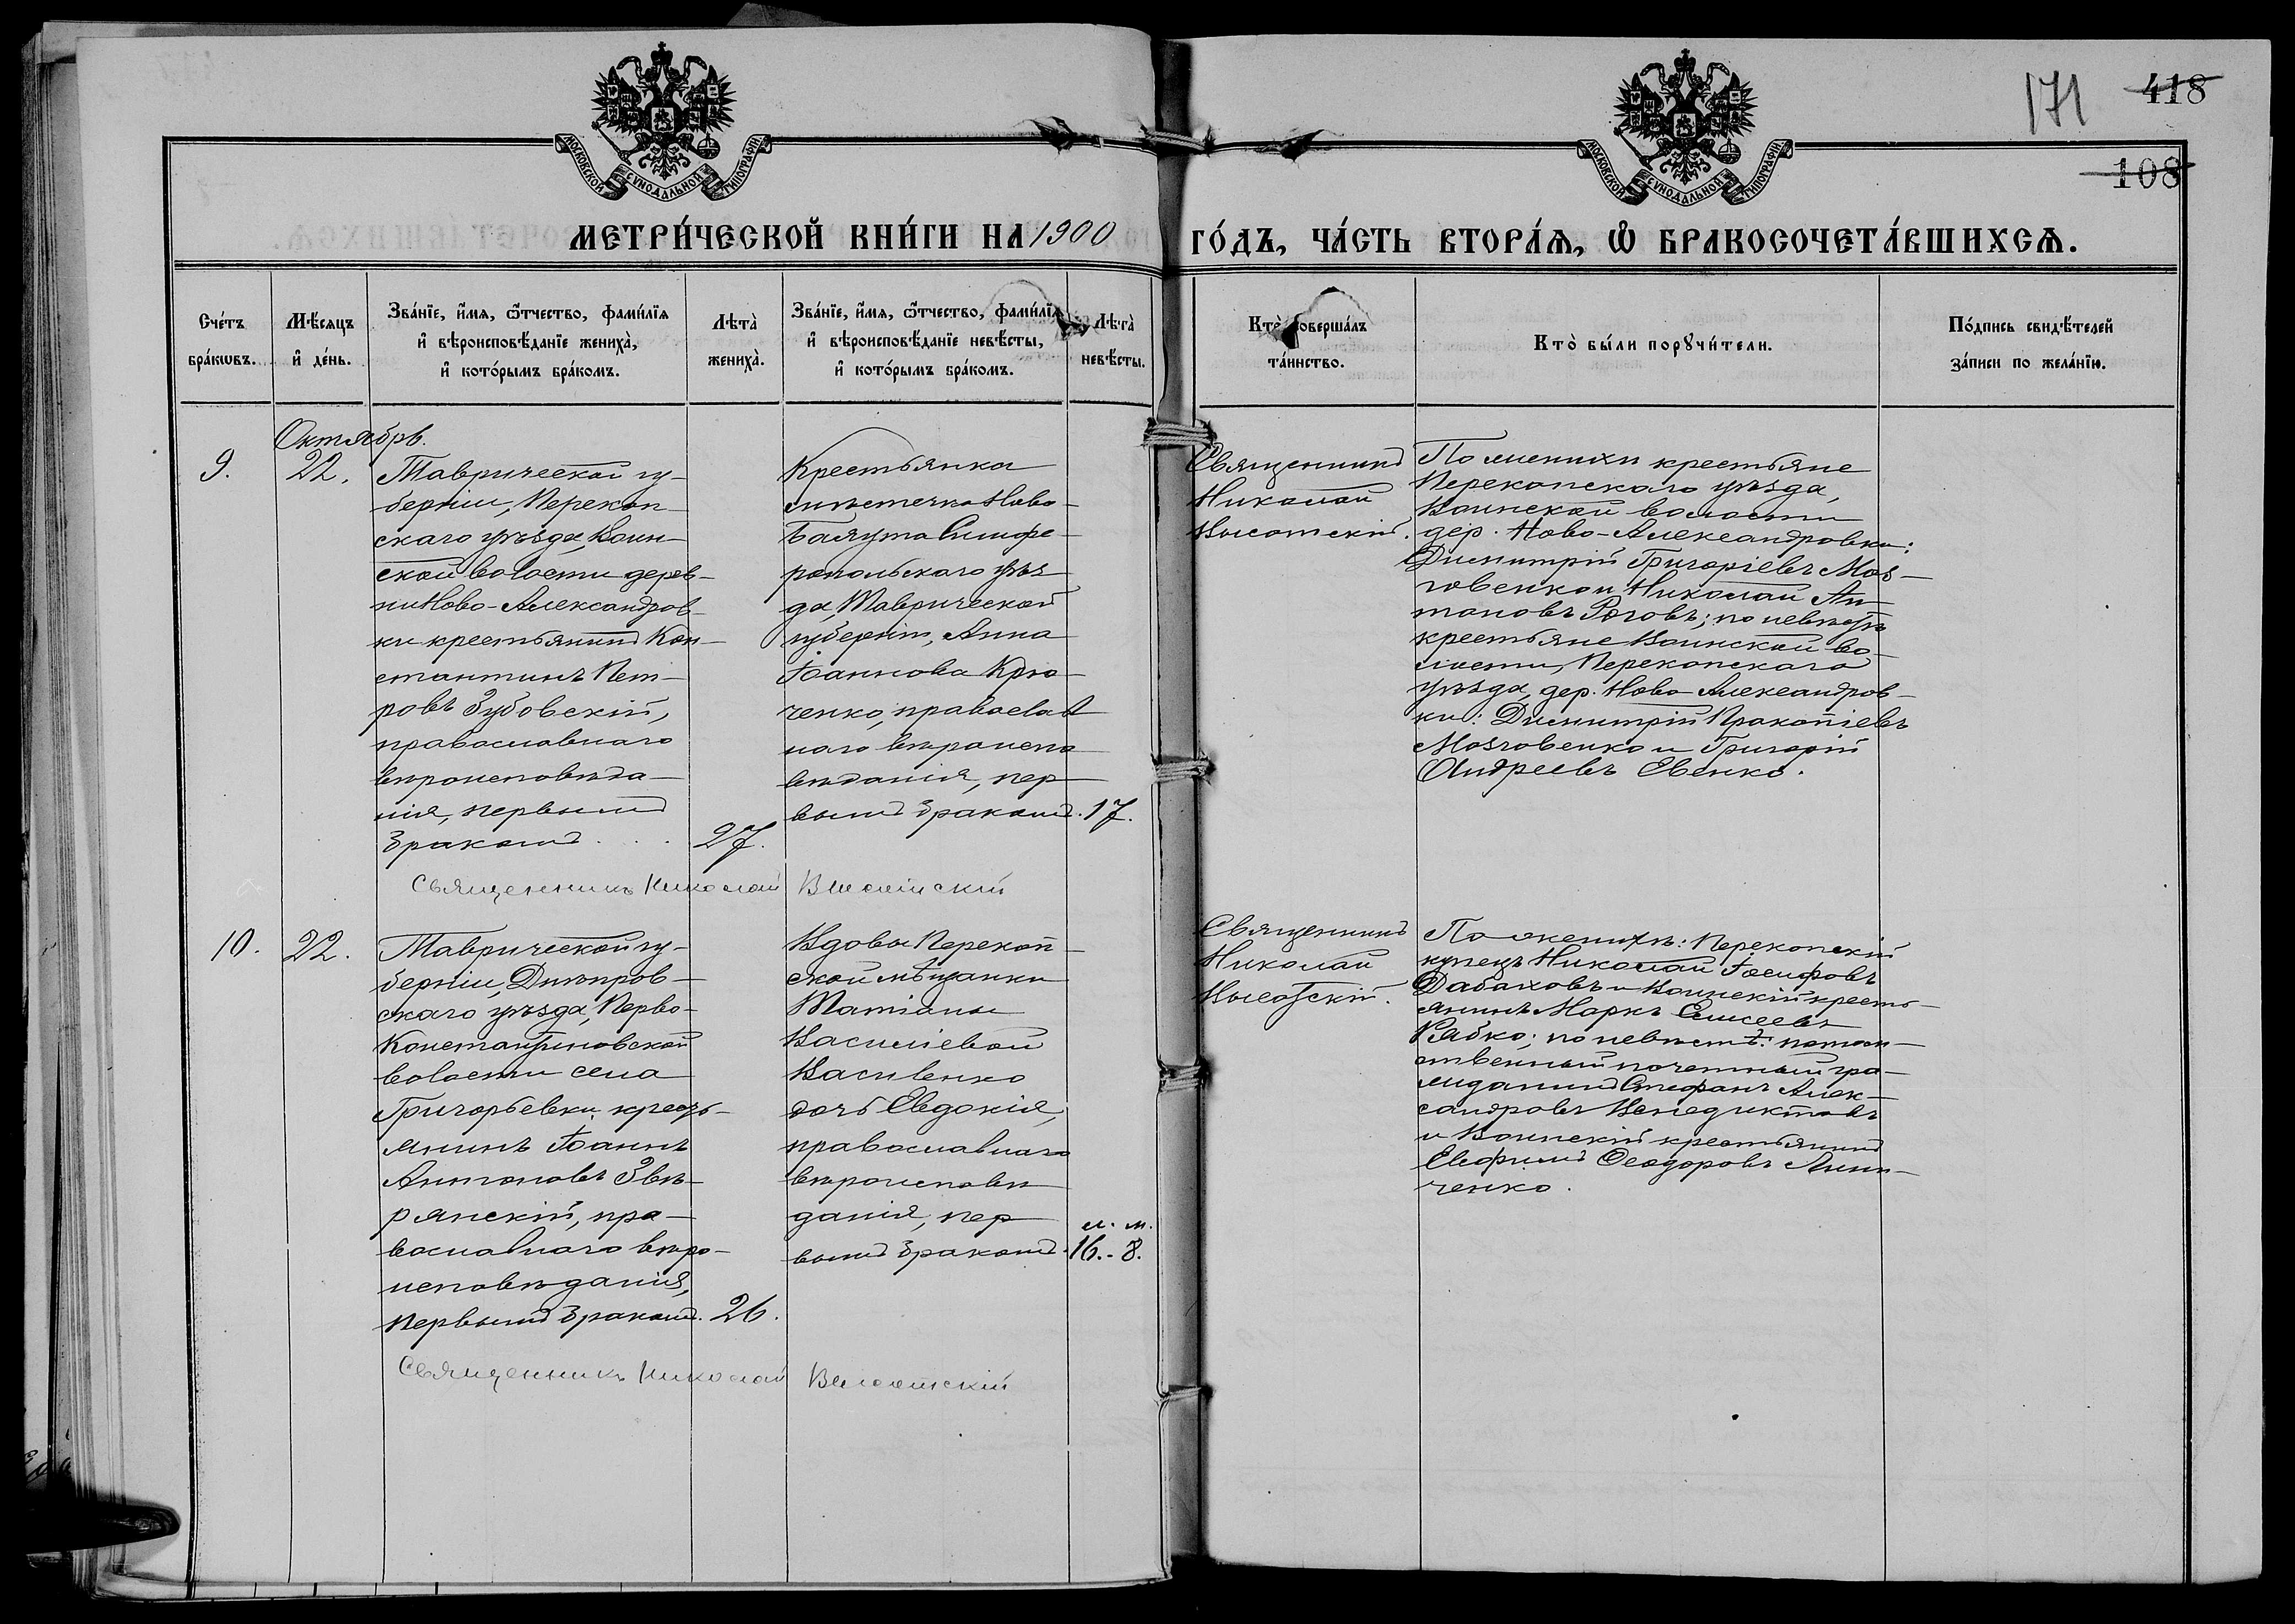 171
418
108
МОСКОВСКОЙ СѴНОДАЛЬНОЙ ТИПОГРАФІИ
МОСКОВСКОЙ СѴНОДАЛЬНОЙ ТИПОГРАФІИ
МЕТРИ́ЧЕСКОЙ КНИ́ГИ НА 1900 ГО́ДЪ, ЧА́СТЬ ВТОРА́Ѧ, Ѡ҆ БРАКОСОЧЕТА́ВШИХСѦ.
Сче́тъ
бра́кѡвъ.
Мѣ́сяцъ
и҆ де́нь.
Зва́нїе, и҆́мя, ѻ҆́тчество, фами́лїя
и҆ вѣроисповѣ́данїе жениха̀,
и҆ кото́рымъ бра́комъ.
Лѣта̀
жениха̀.
Зва́нїе, и҆́мя, ѻ҆́тчество, фами́лїя
и҆ вѣроисповѣ́данїе невѣ́сты,
и҆ кото́рымъ бра́комъ.
Лѣта̀
невѣ́сты.
Кто̀ соверша́лъ
та́инство.
Кто̀ бы́ли порꙋчи́тели.
По́дпись свидѣ́телей
за́писи по жела́нїю.
Октябрь.
9.
22.
Таврической гу-
берніи, Перекоп-
скаго уѣзда, Воин-
ской волости дерев-
ни Ново-Александров-
ки крестьянинъ Кон-
стантинъ Пет-
ровъ Зубовскій,
православнаго
вѣроисповѣда-
нія, первымъ
бракомъ . . .
27.
Крестьянка
мѣстечка Ново-
Баяута Симфе-
ропольскаго уѣз-
да, Таврической
губерніи, Анна
Іоаннова Крю-
ченко, православ
наго вѣроиспо
вѣданія, пер-
вымъ бракомъ.
17.
Священникъ
Николай
Высотскій.
По женихѣ крестьяне
Перекопскаго уѣзда,
Воинской волости
дер. Ново-Александровки:
Димитрій Григоріевъ Моз-
говенко и Николай Ан-
тоновъ Роговъ; по невѣстѣ
крестьяне Воинской во-
лости, Перекопскаго
уѣзда, дер. Ново-Александров-
ки: Димитрій Прокопіевъ
Мозговенко и Григорій
Андреевъ Евенко.
Священникъ Николай Высотскій
10.
22.
Таврической гу-
берніи, Днѣпров-
скаго уѣзда, Перво-
Константиновской
волости села
Григорьевки кресть-
янинъ Іоаннъ
Антоновъ Звѣ-
рянскій, пра-
вославнаго вѣро-
исповѣданія,
первымъ бракомъ.
26.
Вдовы Перекоп-
ской мѣщанки
Татіаны
Василіевой
Василенко
дочь Евдокія,
православнаго
вѣроисповѣ
данія, пер-
вымъ бракомъ.
л. м.
16.-8.
Священникъ
Николай
Высотскій.
По женихѣ: Перекопскій
купецъ Николай Іосифовъ
Дабаховъ и Воинскій кресть-
янинъ Маркъ Елисеевъ
Рябко; по невѣстѣ: потом-
ственный почетный гра-
жданинъ Стефанъ Алек-
сандровъ Венедиктовъ
и Воинскій крестьянинъ
Евфимъ Ѳеодоровъ
ченко.
Священникъ Николай Высотскій